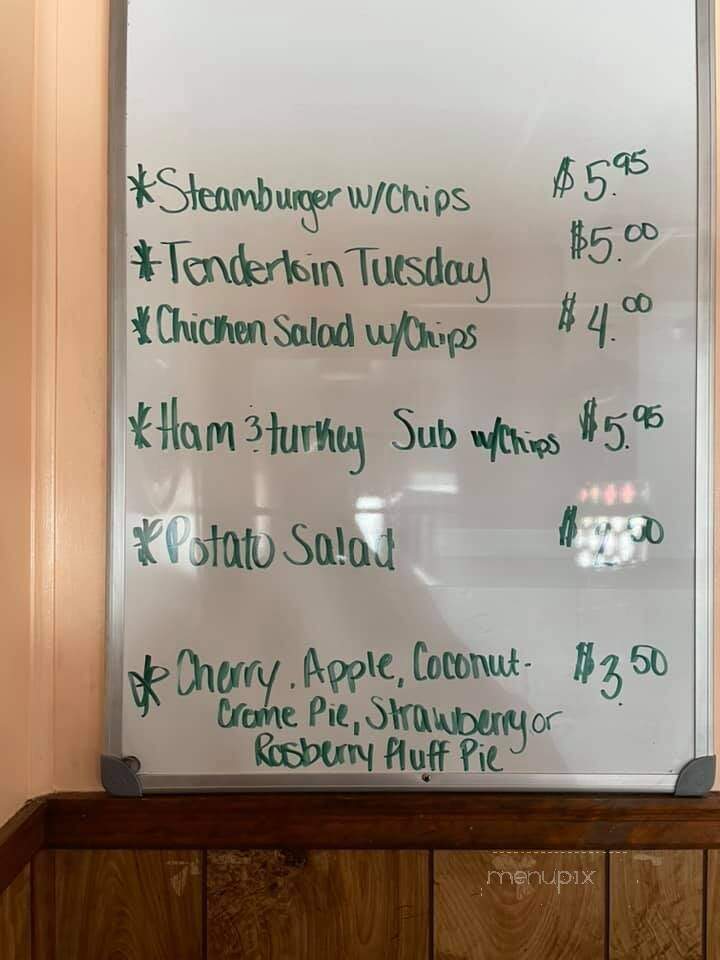 *Steamburger w/Chips $5.95
*Tenderloin Tuesday $5.00
*Chicken Salad w/Chips $4.00
*Ham & turkey Sub w/Chips $5.95
*Potato Salad $2.50
*Cherry, Apple, Coconut- $3.50
Creme Pie, Strawberry or
Rasberry fluff Pie
menupix